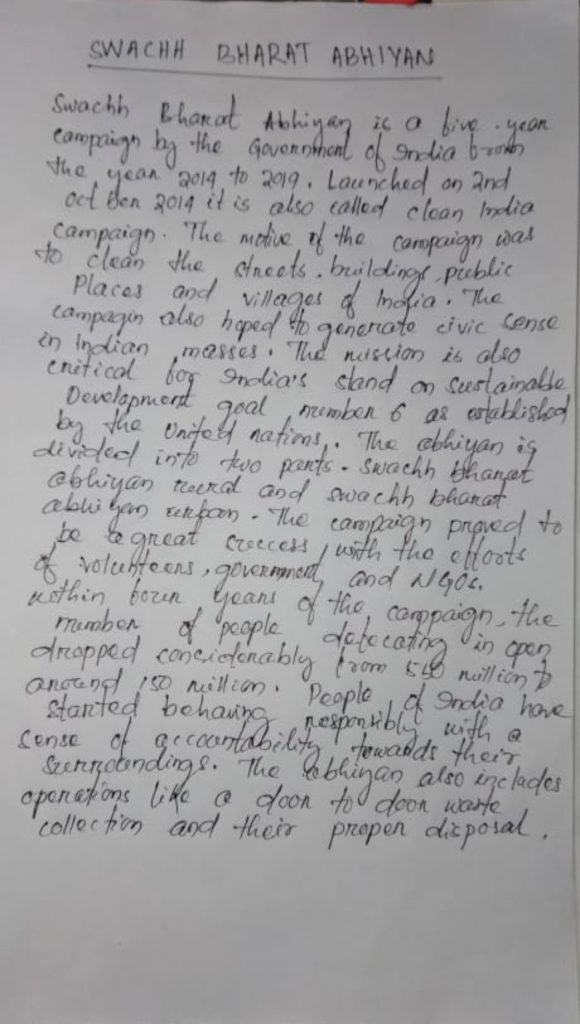 SWACHH BHARAT ABHIYAN
Swachh Bharat Abhiyan is a five-year
campaign by the Government of India from
the year 2014 to 2019. Launched on 2nd
Oct ber 2014 it is also called clean India
campaign. The motive of the campaign was
to clean the streets, buildings, public
Places and villages of India. The
campagin also hoped to generate civic sense
in Indian masses. The mission is also
critical for India's stand on sustainable
Development goal number 6 as established
by the United nations. The abhiyan is
divided into two parts - Swachh bharat
abhiyan rural and swachh bharat
abhiyan urban. The campaign proved to
be a great success, with the efforts
of volunteers, government, and NGOs.
within four years of the campaign, the
number of people defecating in open
dropped considerably from 550 million to
around 150 million. People of India have
started behaving responsibly with a
sense of accountability towards their
surroundings. The abhiyan also includes
operations like a door to door waste
collection and their proper disposal.